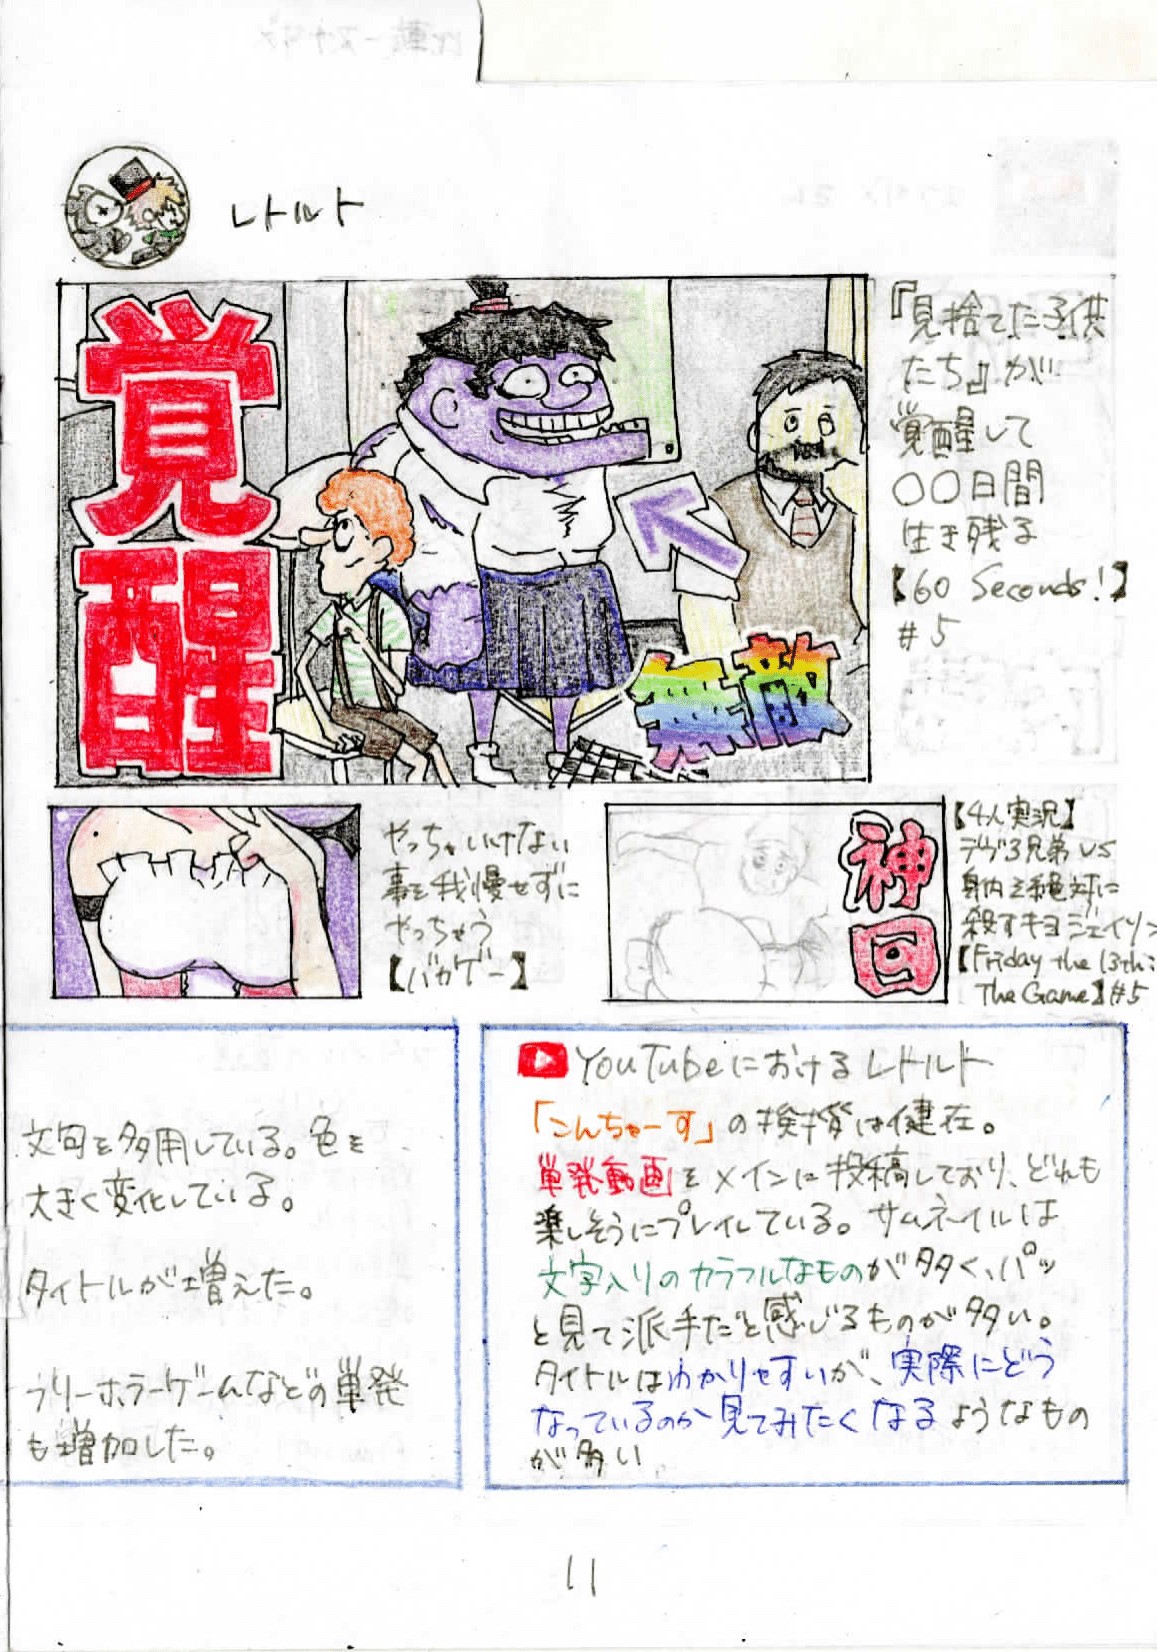 レトルト
覚醒
無敵
『見捨てた子供
たち』が
覚醒して
〇〇日間
生き残る
【60 Seconds!】
#5
やっちゃいけない
事を我慢せずに
やっちゃう
【バカゲー】
神回
【4人実況】
デヴ3兄弟VS
身内を絶対に
殺すキヨジェイソン
【Friday the 13th:
The Game】#5
文句を多用している。色を
大きく変化している。
タイトルが増えた。
フリーホラーゲームなどの単発
も増加した。
YouTubeにおけるレトルト
「こんちゃーす」の挨拶は健在。
単発動画をメインに投稿しており、どれも
楽しそうにプレイしている。サムネイルは
文字入りのカラフルなものが多く、パッ
と見て派手だと感じるものが多い。
タイトルはわかりやすいが、実際にどう
なっているのか見てみたくなるようなもの
が多い
11